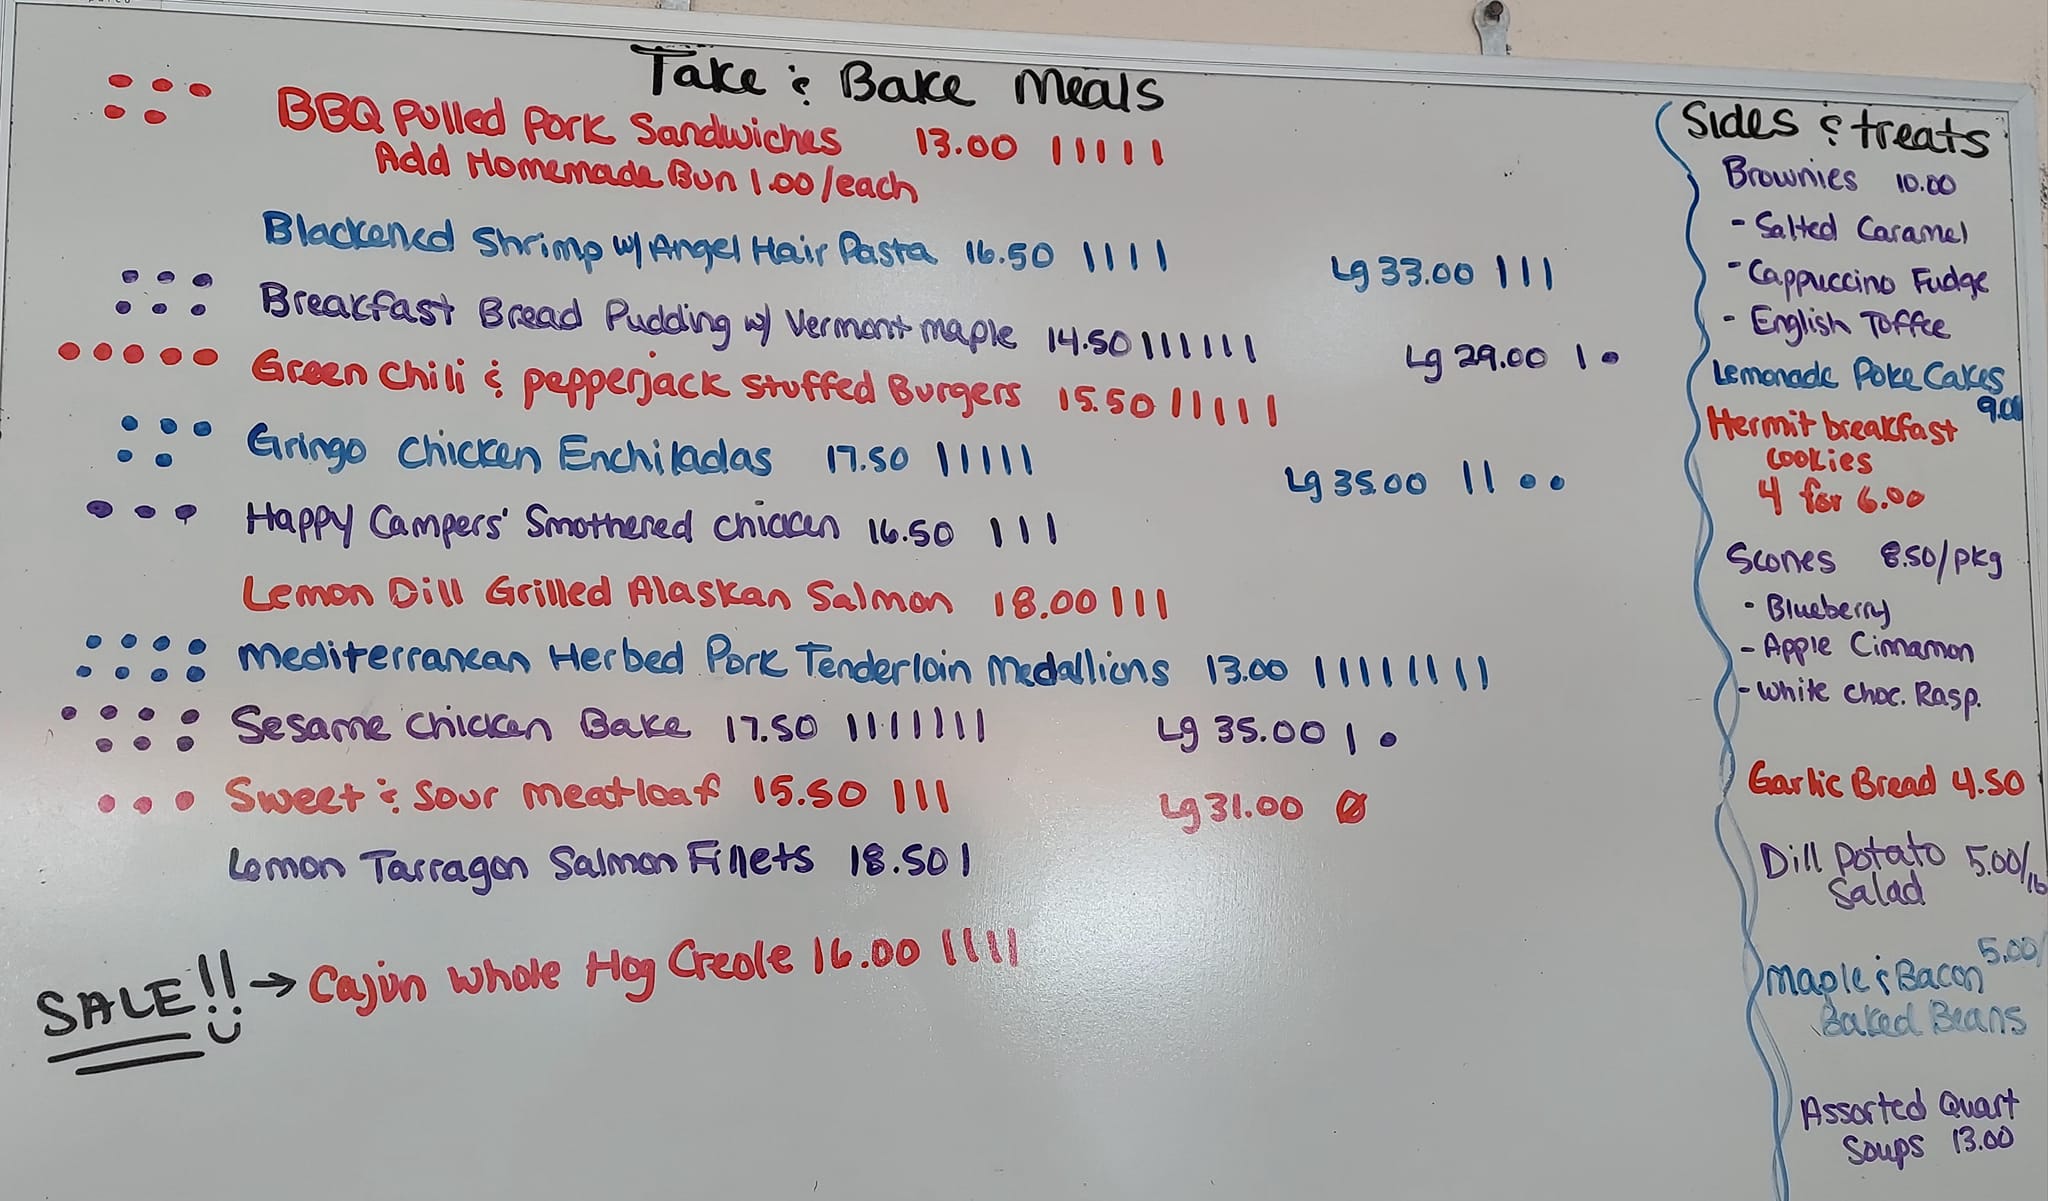 Take & Bake Meals
BBQ Pulled Pork Sandwiches 13.00 | | | | |
Add Homemade Bun 1.00/each
Blackened Shrimp w/ Angel Hair Pasta 16.50 | | | | Lg 33.00 | | |
Breakfast Bread Pudding w/ Vermont maple 14.50 | | | | | | Lg 29.00 | •
Green Chili & pepperjack Stuffed Burgers 15.50 | | | | |
Gringo Chicken Enchiladas 17.50 | | | | | Lg 35.00 | | • •
Happy Campers' Smothered Chicken 16.50 | | |
Lemon Dill Grilled Alaskan Salmon 18.00 | | |
Mediterranean Herbed Pork Tenderloin Medallions 13.00 | | | | | | | |
Sesame Chicken Bake 17.50 | | | | | | | Lg 35.00 | •
Sweet & Sour meatloaf 15.50 | | | Lg 31.00 Ø
Lemon Tarragon Salmon Fillets 18.50 |
SALE!! → Cajun Whole Hog Creole 16.00 | | | |
Sides & treats
Brownies 10.00
- Salted Caramel
- Cappuccino Fudge
- English Toffee
Lemonade Poke Cakes
9.00
Hermit breakfast
cookies
4 for 6.00
Scones 8.50/pkg
- Blueberry
- Apple Cinnamon
- White Choc. Rasp.
Garlic Bread 4.50
Dill Potato 5.00/lb
Salad
5.00/
Maple & Bacon
Baked Beans
Assorted Quart
Soups 13.00